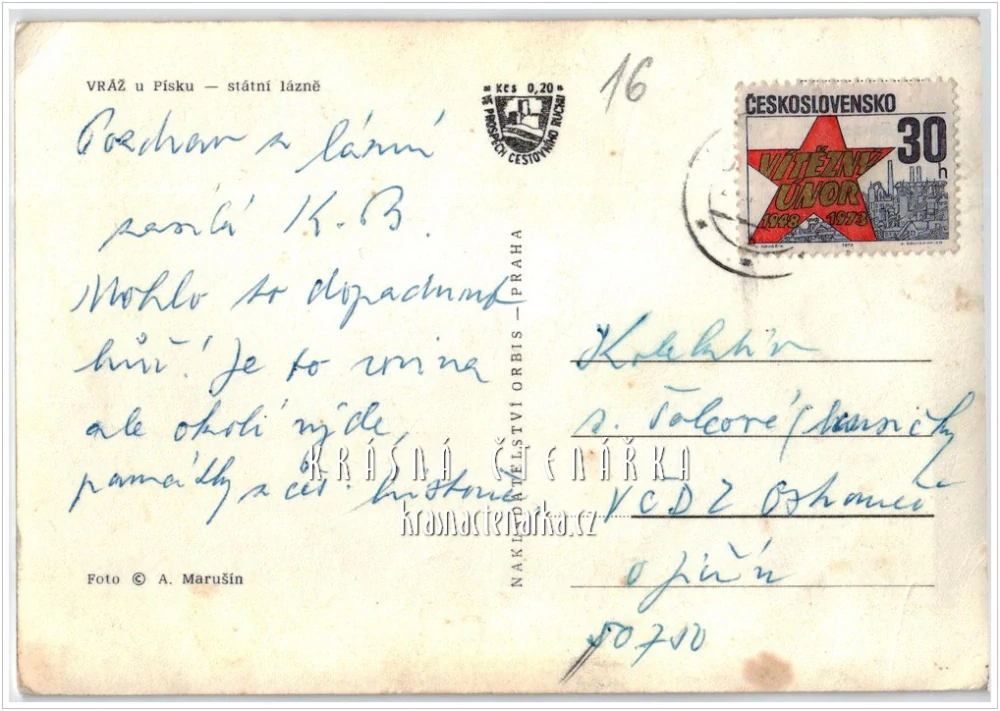 VRÁŽ u Písku — státní lázně
Pozdrav z lázní
zasílá K. B.
Mohlo to dopadnout
hůř! Je to rovina
ale okolí ujde,
památky z čes. historie
Foto © A. Marušín
Kčs 0,20
VE PROSPĚCH CESTOVNÍHO RUCHU
NAKLADATELSTVÍ ORBIS — PRAHA
16
ČESKOSLOVENSKO
30 h
VÍTĚZNÝ
ÚNOR
1948 1973
Kolektiv
s. Šolcové
VČDZ
u Jičín
507 50
KRÁSNÁ ČTENÁŘKA
krasnactenarka.cz